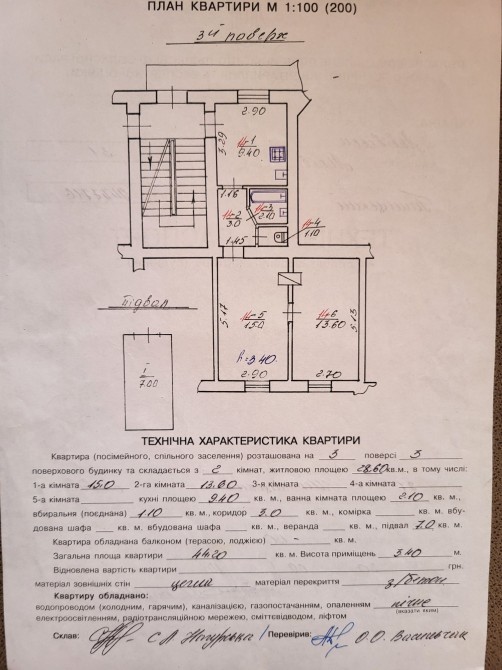 ПЛАН КВАРТИРИ М 1:100 (200)
3й поверх
2.90
5.29
11-1
9.40
1.16
11-2
3.0
11-3
2.10
11-4
1.10
1.45
Підвал
5.17
11-5
15.0
11-6
13.60
5.13
I
7.00
h=3.40
2.90
2.70
ТЕХНІЧНА ХАРАКТЕРИСТИКА КВАРТИРИ
Квартира (посімейного, спільного заселення) розташована на 3 поверсі 3
поверхового будинку та складається з 2 кімнат, житловою площею 28.60 кв.м., в тому числі:
1-а кімната 15.0 2-га кімната 13.60 3-я кімната 4-а кімната
5-а кімната кухні площею 9.40 кв. м., ванна кімната площею 2.10 кв. м.,
вбиральня (поєднана) 1.10 кв. м., коридор 3.0 кв. м., комірка кв. м. вбу-
дована шафа кв. м. вбудована шафа кв. м., веранда кв. м., підвал 7.0 кв. м.
Квартира обладнана балконом (терасою, лоджією) - кв. м.
Загальна площа квартири 44.20 кв. м. Висота приміщень 3.40 м.
Відновлена вартість квартири грн.
матеріал зовнішніх стін цегла матеріал перекриття з/бетон
Квартиру обладнано:
водопроводом (холодним, гарячим), каналізацією, газопостачанням, опаленням пічне
(вказати яким)
електроосвітленням, радіотрансляційною мережею, сміттєвідводом, ліфтом
Склав: Перевірив: